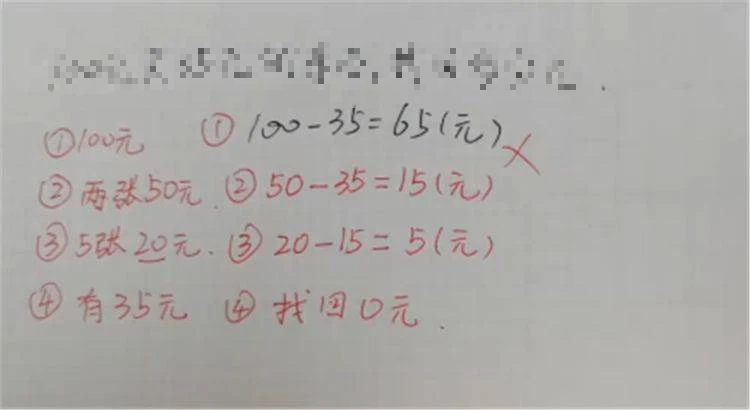 ①100元 ①100-35=65(元)
②两张50元. ②50-35=15(元)
③5张20元. ③20-15=5(元)
④有35元 ④找回0元.